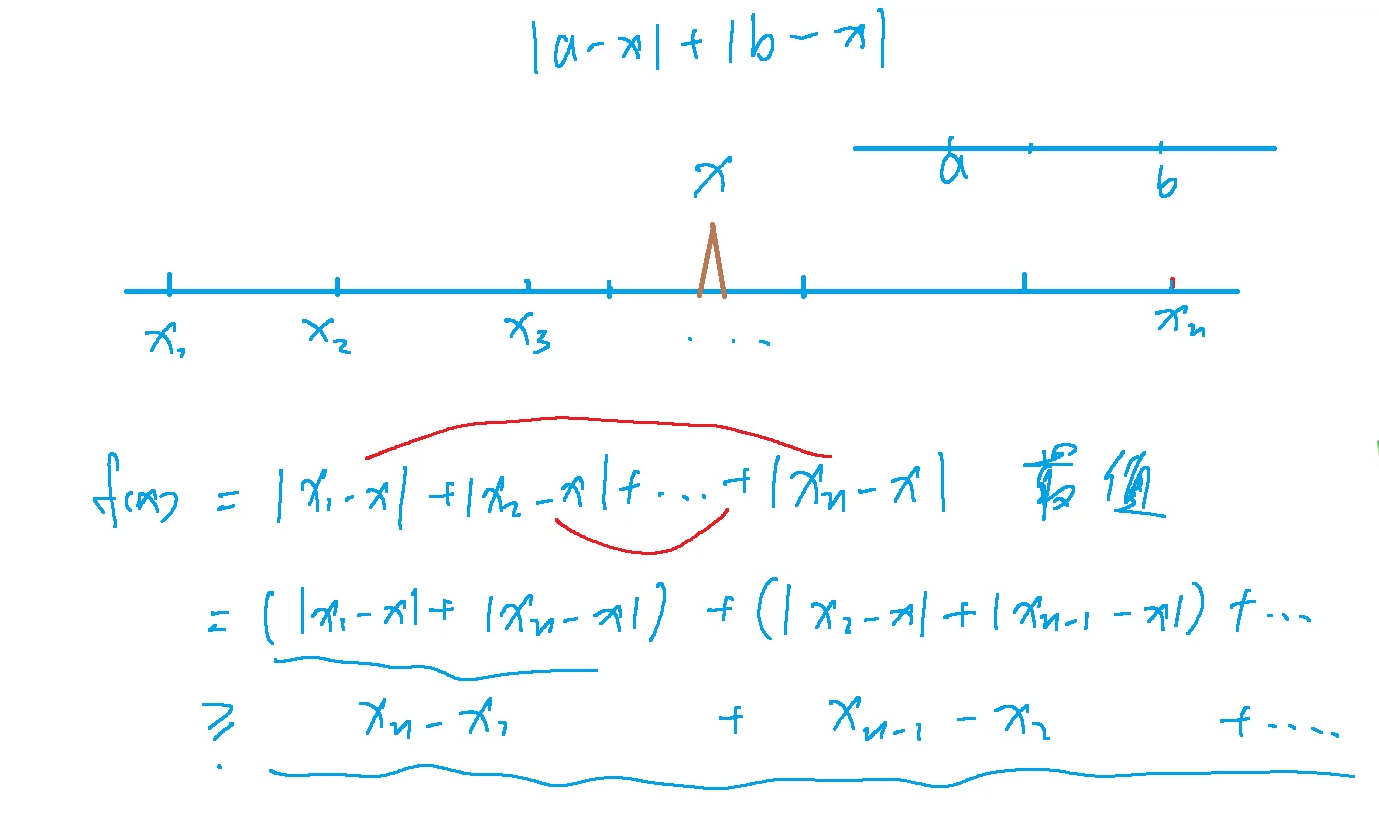 |a-x|+|b-x|
x
a b
x₁ x₂ x₃ ... xₙ
f(x) = |x₁-x|+|x₂-x|+...+|xₙ-x| 值
= (|x₁-x|+|xₙ-x|) + (|x₂-x|+|xₙ₋₁-x|) + ...
≥ xₙ-x₁ + xₙ₋₁-x₂ + ....